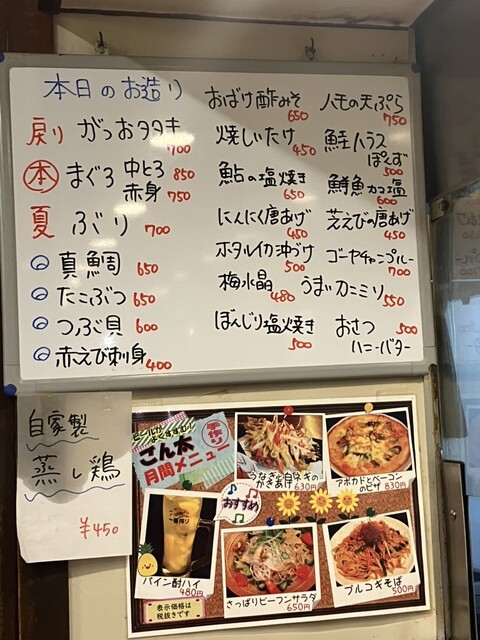 本日のお造り
戻り がつおタタキ 700
本 まぐろ 中とろ 850
赤身 750
夏 ぶり 700
真鯛 650
たこぶつ 650
つぶ貝 600
赤えび刺身 400
おばけ酢みそ 650
焼しいたけ 450
鮎の塩焼き 650
にんにく唐あげ 450
ホタルイカ沖づけ 500
梅水晶 480
ぼんじり塩焼き 500
ハモの天ぷら 750
鮭ハラス
ぽんず 500
カマ塩 600
芝えびの唐あげ 450
ゴーヤチャンプルー 700
うまいカニミソ 550
おさつ 500
ハニーバター
自家製
蒸し鶏
¥450
ビールが
こん太
月間メニュー
おすすめ
かきあげ 630円
アボカドとベーコン
のピザ 830円
一番搾り
パイン酎ハイ
480円
さっぱりビーフンサラダ
650円
プルコギそば
500円
表示価格は
税抜きです